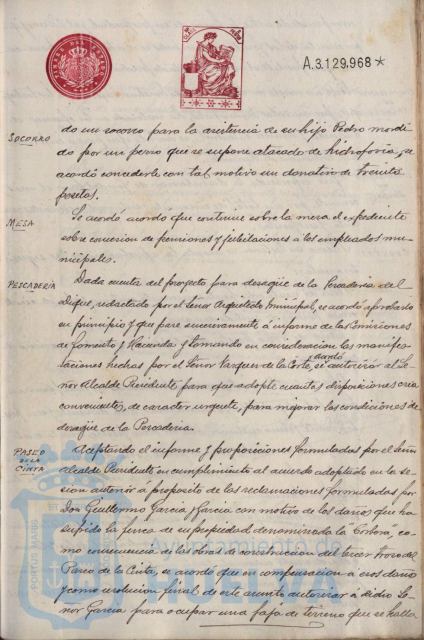 A.3.129.968*
SOCORRO
do un socorro para la asistencia de su hijo Pedro mordi-
do por un perro que se supone atacado de hidrofobia, se
acordó concederle con tal motivo un donativo de treinta
pesetas.
MESA
Se acordó acordó que continue sobre la mesa el expediente
sobre concesion de pensiones y jubilaciones a los empleados mu-
nicipales.
PESCADERÍA
Dada cuenta del proyecto para desagüe de la Pescaderia del
Dique, redactado por el Señor Arquitecto Municipal, se acordó aprobarlo
en principio y que pase nuevamente á informe de las Comisiones
de Fomento y Hacienda y tomando en consideracion las manifes-
taciones hechas por el Señor Vazquez de la Corte, se acordó autorizar al Se-
ñor Alcalde Presidente para que adopte cuantas disposiciones crea
convenientes, de caracter urgente, para mejorar las condiciones de
desagüe de la Pescaderia.
PASEO
DE LA
CINTA
Aceptando el informe y proposiciones formuladas por el Señor
Alcalde Presidente en cumplimiento al acuerdo adoptado en la se-
sion anterior á proposito de las reclamaciones formuladas por
Don Guillermo Garcia y Garcia con motivo de los daños que ha
sufrido la finca de su propiedad denominada la co-
mo consecuencia de las obras de construccion del tercer trozo del
Paseo de la Cinta, se acordó que en compensacion á esos daños
y como resolucion final de este asunto autorizar á dicho Se-
ñor Garcia para ocupar una faja de terreno que se halla